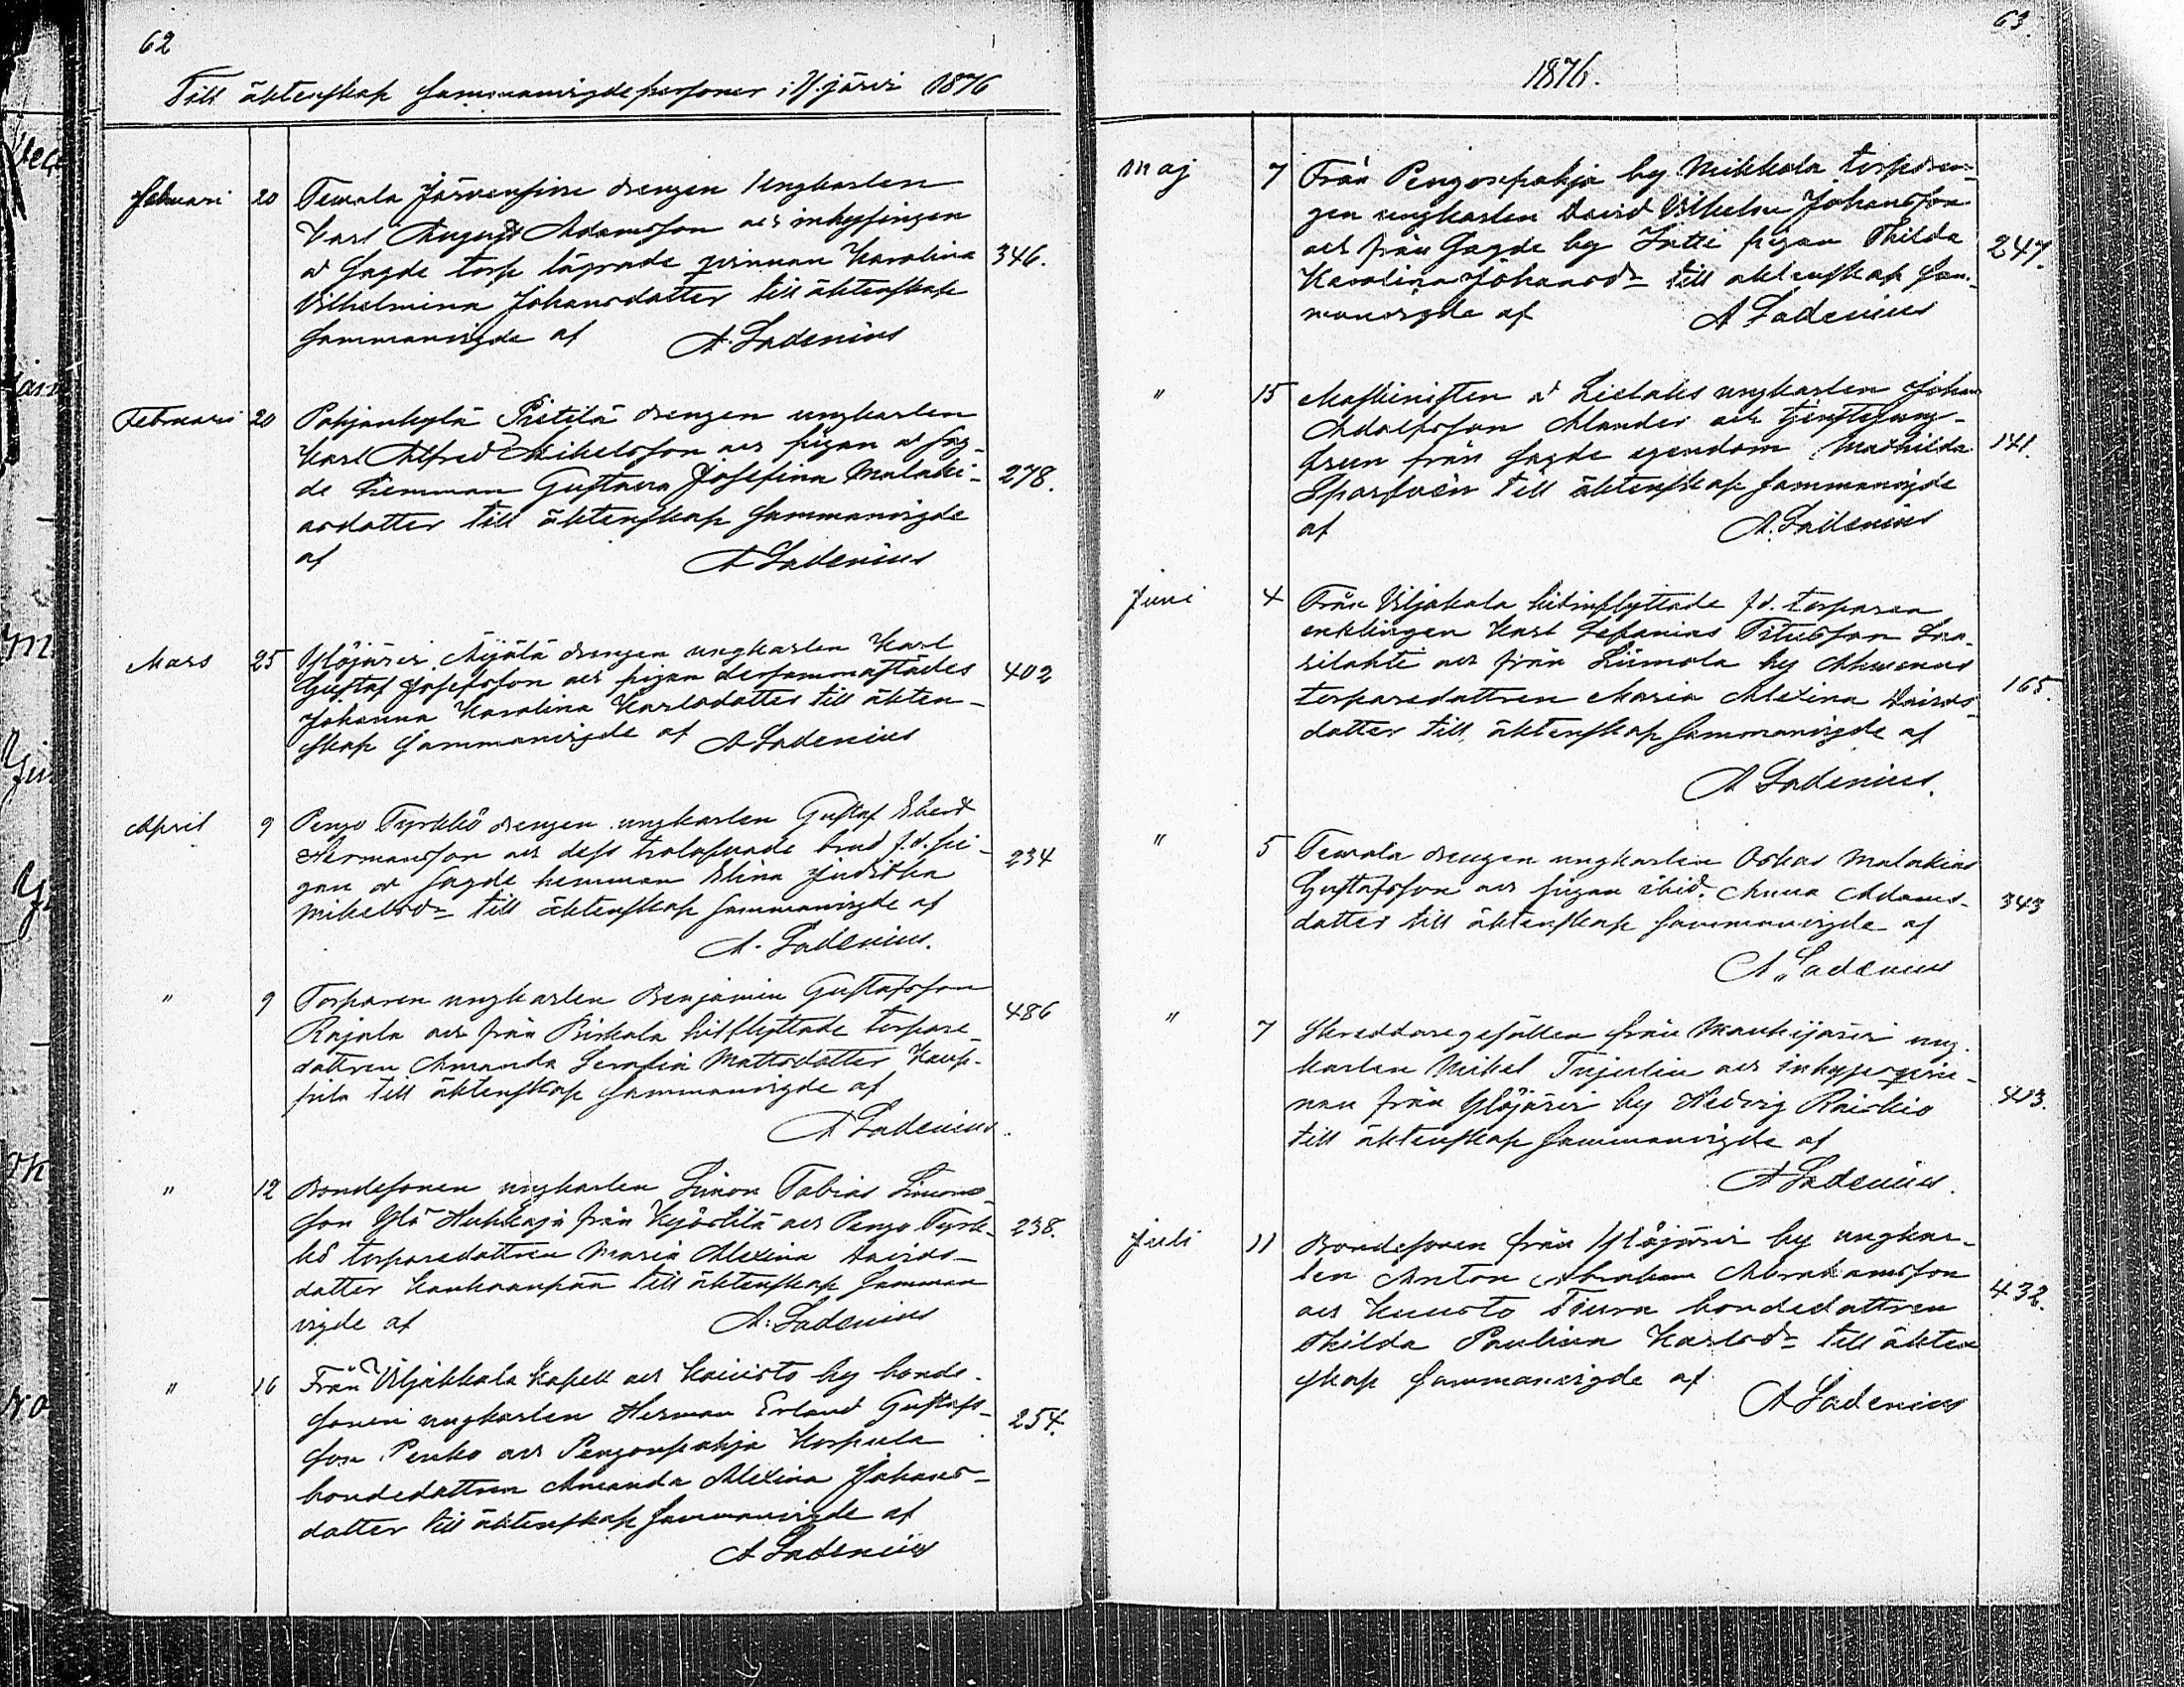 62
Till äktenskap sammanvigde personer i Y.järvi 1876
Februari 20 Temala Järvensivu drengen Ungkarlen
Karl August Adamsson och inhysingen
å sagde torp lägrade qvinnan Karolina 346.
Vilhelmina Johansdotter till äktenskap
sammanvigde af A. Ladenius
Februari 20 Pohjankylä Pietilä drengen ungkarlen
Karl Alfred Mikelsson och pigan å sag-
de hemman Gustava Josefina Malaki- 278.
asdotter till äktenskap sammanvigde
af A Ladenius
Mars 25 Ylöjärvi Äijälä drengen ungkarlen Karl
Gustaf Josefsson och pigan dersammastädes 402
Johanna Karolina Karlsdotter till äkten-
skap sammanvigde af A Ladenius
April 9 Pengo Tyrkkö drengen ungkarlen Gustaf Evert
Hermansson och dess trolofvade brud f.d. pi- 234
gan å sagde hemman Elina Juditha
Mikelsdr till äktenskap sammanvigde af
A. Ladenius.
" 9 Torparen ungkarlen Benjamin Gustafsson
Rajala och från Birkala hitflyttade torpare- 486
dottren Amanda Serafia Mattsdotter Kaup-
pila till äktenskap sammanvigde af
A Ladenius.
" 12 Bondesonen ungkarlen Simon Tobias Simons-
son Ylä Huhkaja från Kyöstilä och Pengo Tyrk- 238.
kö torparedottren Maria Alexina Davids-
dotter Kaukaanpää till äktenskap samman
vigde af A. Ladenius
" 16 Från Viljakkala Kapell och Koivisto by bonde-
sonen ungkarlen Herman Erland Gustafs- 254.
son Penko och Pengonpohja Korpula
bondedottren Amanda Alexina Johans-
dotter till äktenskap sammanvigde af
A Ladenius
63.
1876.
Maj 7 Från Pengonpohja by Mikkola torpdren-
gen ungkarlen David Vilhelm Johansson
och från sagde by Intti pigan Thilda 247.
Karolina Johansdr till äktenskap sam-
manvigde af A Ladenius
" 15 Maskinisten å Lielaks ungkarlen Johan
Adolfsson Alander och tjenstejung-
frun från sagde egendom Mathilda 141.
Sparfvén till äktenskap sammanvigde
af A. Ladenius
Juni 4 Från Viljakala hitinflyttade f.d. torparen
enklingen Karl Sefanias Titusson Saa-
rilahti och från Siimola by Ahvenus
torparedottren Maria Alexina Davids- 165.
dotter till äktenskap sammanvigde af
A Ladenius.
" 5 Temala drengen ungkarlen Oskar Malakias
Gustafsson och pigan ibid. Anna Adams- 343
dotter till äktenskap sammanvigde af
A Ladenius
" 7 Skreddaregesällen från Mouhijärvi ung-
karlen Mikel Tujulin och inhyseqvin-
nan från Ylöjärvi by Hedvig Raiskio 413.
till äktenskap sammanvigde af
A Ladenius.
Juli 11 Bondesonen från Ylöjärvi by ungkar-
len Anton Abraham Abrahamsson 432.
och Kuusto Tiura bondedottren
Thilda Paulina Karlsdr till äkten
skap sammanvigde af
A Ladenius